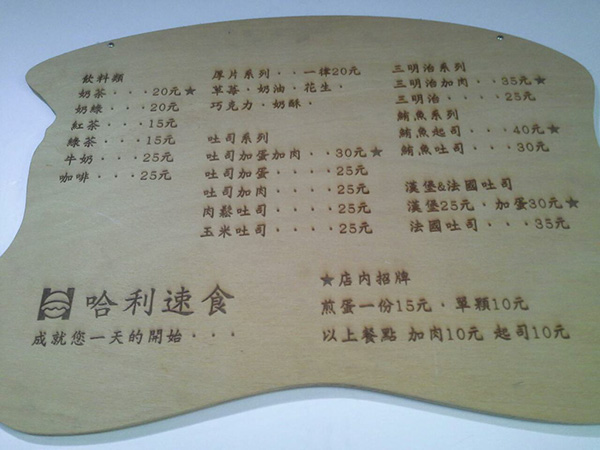 飲料類
奶茶···20元★
奶綠···20元
紅茶···15元
綠茶···15元
牛奶···25元
咖啡···25元
厚片系列··一律20元
草莓、奶油、花生、
巧克力、奶酥、
吐司系列
吐司加蛋加肉···30元★
吐司加蛋····25元
吐司加肉····25元
肉鬆吐司····25元
玉米吐司····25元
三明治系列
三明治加肉··35元★
三明治····25元
鮪魚系列
鮪魚起司···40元★
鮪魚吐司···30元
漢堡&法國吐司
漢堡25元、加蛋30元★
法國吐司···35元
★店內招牌
煎蛋一份15元、單顆10元
以上餐點 加肉10元 起司10元
哈利速食
成就您一天的開始···